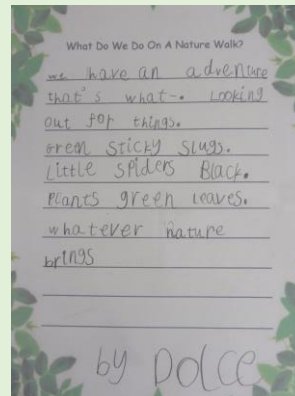 What Do We Do On A Nature Walk?
we have an adventure
that's what-. Looking
out for things.
Green Sticky Slugs.
Little spiders Black.
Plants green leaves.
whatever nature
brings
by Dolce